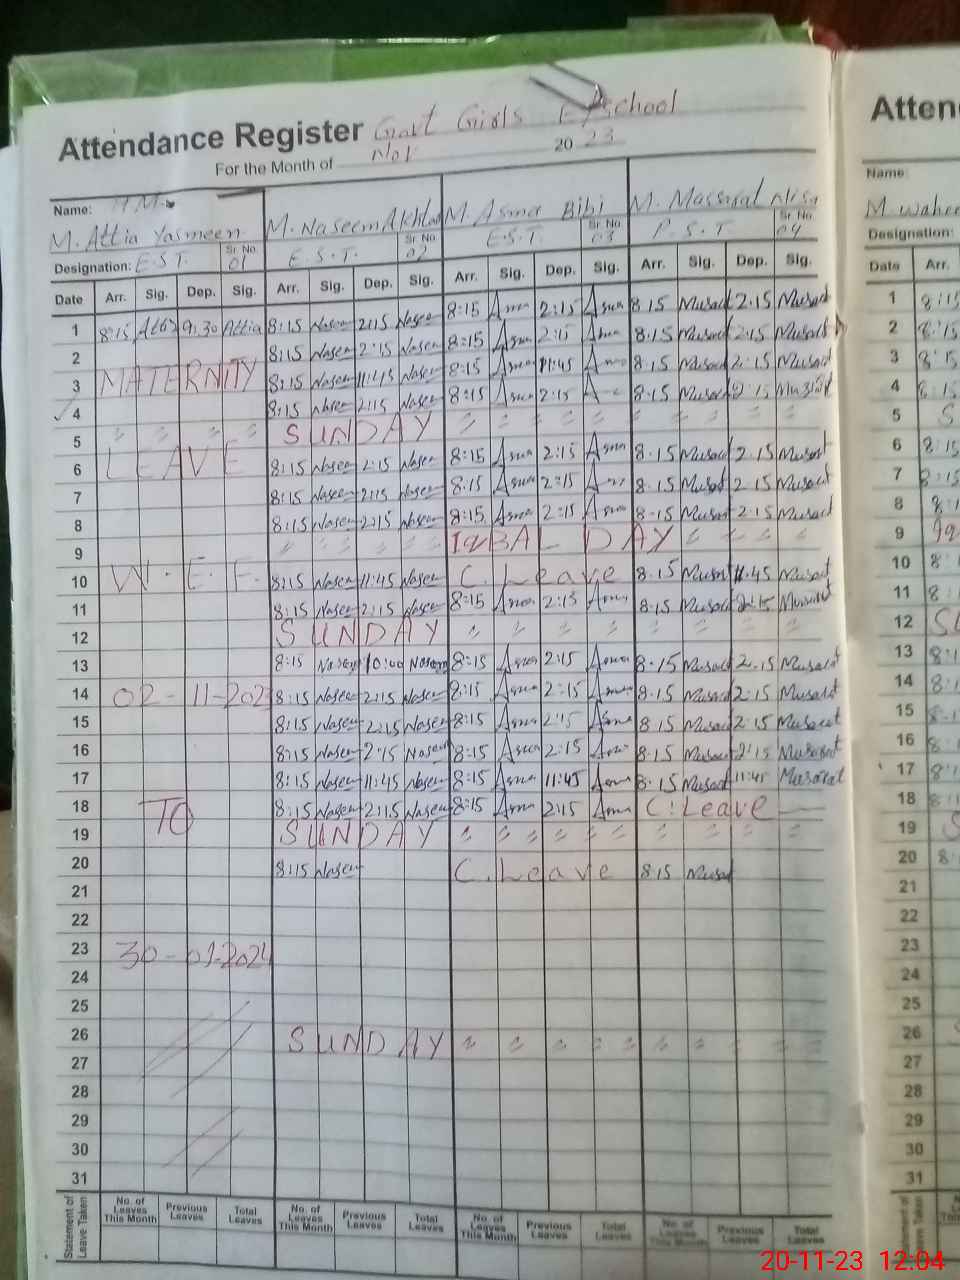 Attendance Register Govt Girls E/School
For the Month of No1 20 23
Name: H.M. M. Attia Yasmeen M. Naseem Akhtar M. Asma Bibi M. Massarat Nisa
Designation: E.S.T. Sr. No. 01 E.S.T. Sr. No. 02 E.S.T. Sr. No. 03 P.S.T. Sr. No. 04
Date Arr. Sig. Dep. Sig. Arr. Sig. Dep. Sig. Arr. Sig. Dep. Sig. Arr. Sig. Dep. Sig.
1 8:15 Attia 9:30 Attia 8:15 Naseem 2:15 Naseem 8:15 Asma 2:15 Asma 8:15 Musarat 2:15 Musarat
2 8:15 Naseem 2:15 Naseem 8:15 Asma 2:15 Asma 8:15 Musarat 2:15 Musarat
3 MATERNITY 8:15 Naseem 11:45 Naseem 8:15 Asma 11:45 Asma 8:15 Musarat 2:15 Musarat
4 8:15 Naseem 2:15 Naseem 8:15 Asma 2:15 8:15 Musarat 2:15 Musarat
5 SUNDAY
6 LEAVE 8:15 Naseem 2:15 Naseem 8:15 Asma 2:15 Asma 8:15 Musarat 2:15 Musarat
7 8:15 Naseem 2:15 Naseem 8:15 Asma 2:15 Asma 8:15 Musarat 2:15 Musarat
8 8:15 Naseem 2:15 Naseem 8:15 Asma 2:15 Asma 8:15 Musarat 2:15 Musarat
9 IQBAL DAY
10 W.E.F. 8:15 Naseem 11:45 Naseem C. Leave 8:15 Musarat 11:45 Musarat
11 8:15 Naseem 2:15 Naseem 8:15 Asma 2:15 Asma 8:15 Musarat 2:15 Musarat
12 SUNDAY
13 8:15 Naseem 10:00 Naseem 8:15 Asma 2:15 Asma 8:15 Musarat 2:15 Musarat
14 02-11-2023 8:15 Naseem 2:15 Naseem 8:15 Asma 2:15 Asma 8:15 Musarat 2:15 Musarat
15 8:15 Naseem 2:15 Naseem 8:15 Asma 2:15 Asma 8:15 Musarat 2:15 Musarat
16 8:15 Naseem 2:15 Naseem 8:15 Asma 2:15 Asma 8:15 Musarat 2:15 Musarat
17 8:15 Naseem 11:45 Naseem 8:15 Asma 11:45 Asma 8:15 Musarat 11:45 Musarat
18 TO 8:15 Naseem 2:15 Naseem 8:15 Asma 2:15 Asma C. Leave
19 SUNDAY
20 8:15 Naseem C. Leave 8:15 Musarat
21
22
23 30-01-2024
24
25
26 SUNDAY
27
28
29
30
31
Statement of Leave Taken No. of Leaves This Month Previous Leaves Total Leaves No. of Leaves This Month Previous Leaves Total Leaves No. of Leaves This Month Previous Leaves Total Leaves No. of Leaves This Month Previous Leaves Total Leaves
Atten
Name:
M. Wahee
Designation:
Date Arr.
1 8:15
2 8:15
3 8:15
4 8:15
5 S
6 8:15
7 8:15
8 8:
9 Iq
10 8:
11 8:
12 SU
13 8:1
14 8:1
15 8:1
16 8:
17 8:1
18 8:1
19 S
20 8:
21
22
23
24
25
26 S
27
28
29
30
31
Statement of Leave Taken No. of Leaves This Month
20-11-23 12:04